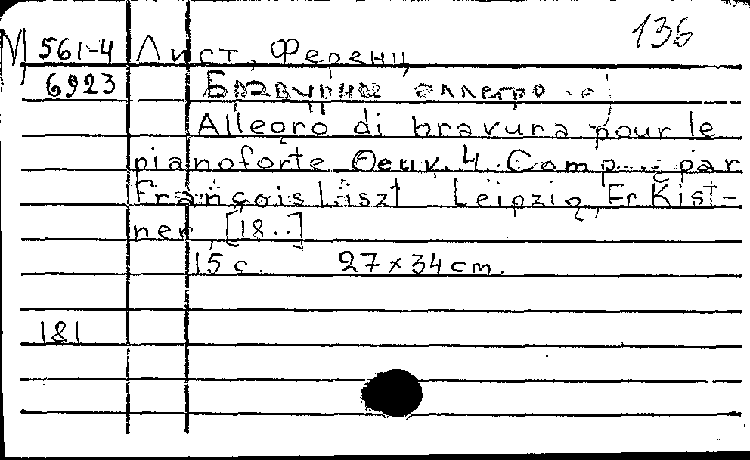 136
М 561-4 Лист, Ференц
6923 Бравурное аллегро
Allegro di bravura pour le
pianoforte Oeuv. 4. Comp.... par
François Liszt Leipzig, Fr Kist-
ner, [18..]
15 с. 27 × 34 cm.
181